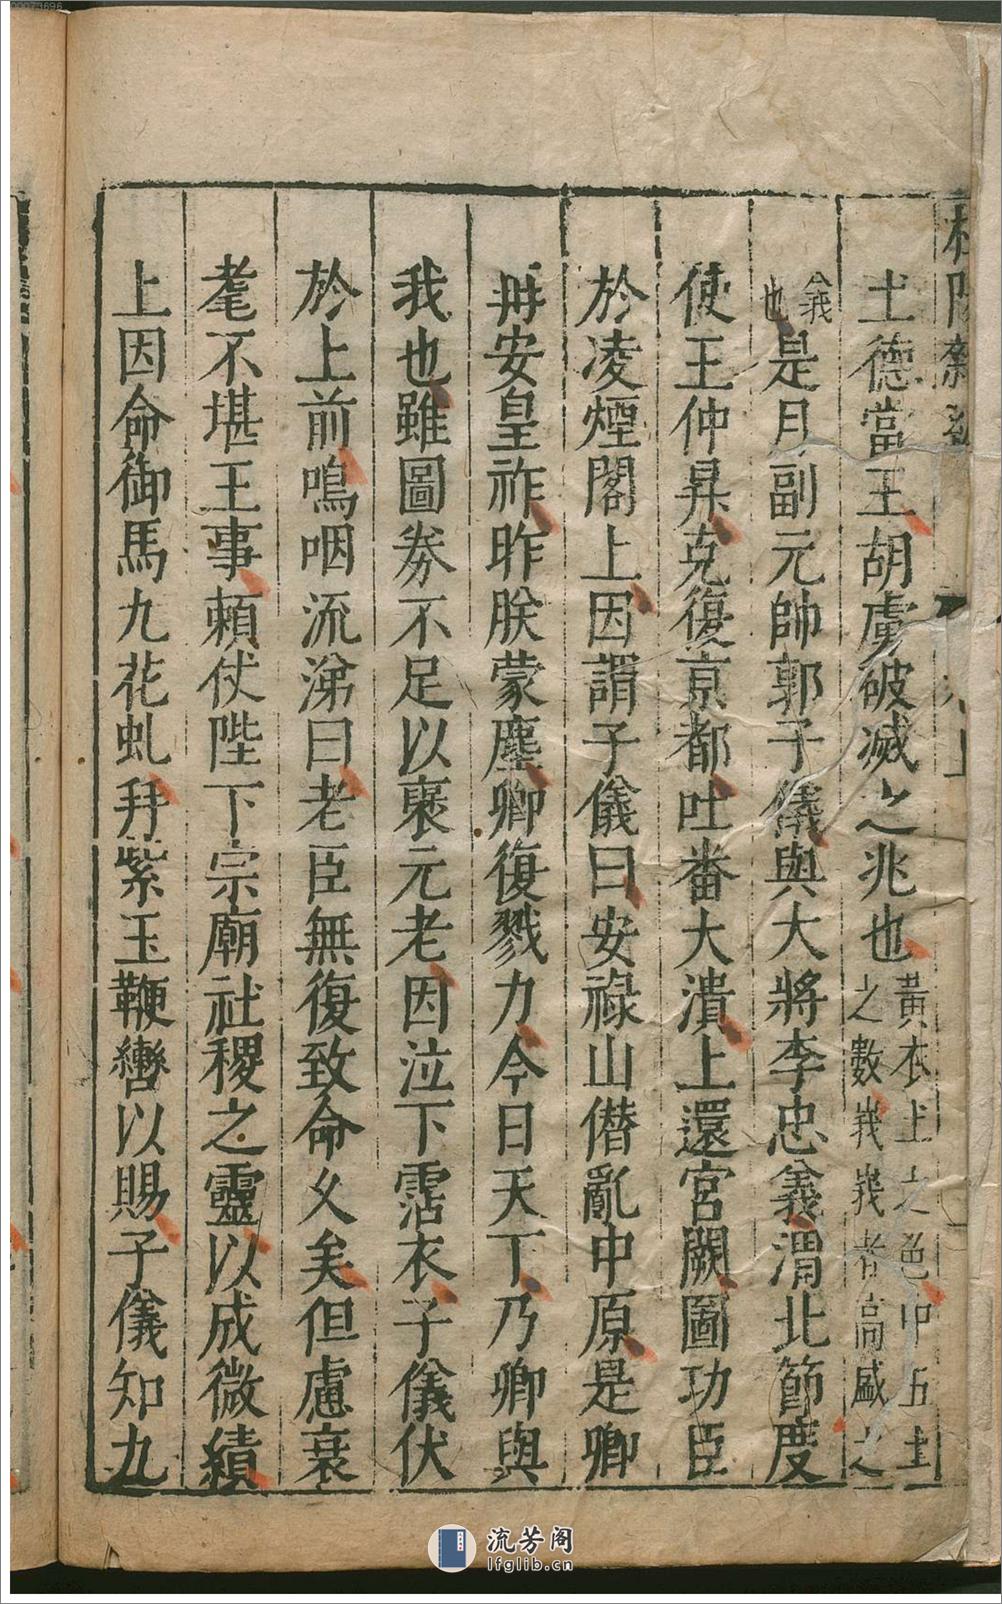 土德當王胡虜破滅之兆也黃衣土之色中五土之數峩峩者高盛之
義也是月副元帥郭子儀與大將李忠義渭北節度
使王仲昇克復京都吐番大潰上還宮闕圖功臣
於凌煙閣上因謂子儀曰安祿山僭亂中原是卿
再安皇祚昨朕蒙塵卿復戮力今日天下乃卿與
我也雖圖券不足以褒元老因泣下霑衣子儀伏
於上前嗚咽流涕曰老臣無復致命久矣但慮衰
耄不堪王事賴仗陛下宗廟社稷之靈以成微績
上因命御馬九花虬并紫玉鞭轡以賜子儀知九
流芳阁
lfglib.cn
00073696